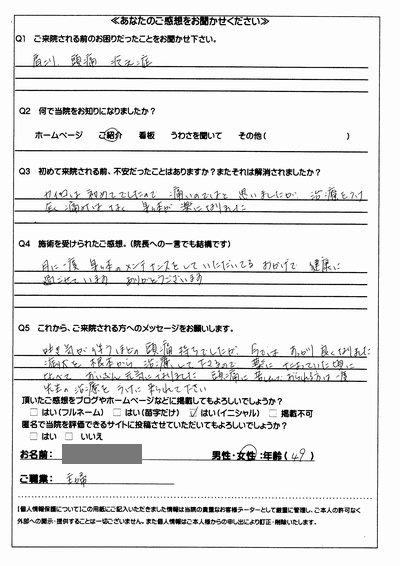 ≪あなたのご感想をお聞かせください≫
Q1 ご来院される前のお困りだったことをお聞かせ下さい。
肩こり、頭痛
Q2 何で当院をお知りになりましたか?
ホームページ ご紹介 看板 うわさを聞いて その他( )
Q3 初めて来院される前、不安だったことはありますか?またそれは解消されましたか?
は初めてでしたので 痛いのではと思いましたが 治療をうけ
痛みはなく 身体が楽になりました
Q4 施術を受けられたご感想。(院長への一言でも結構です)
月に一度 身体のメンテナンスをしていただいてる おかげで 健康に
過ごせています ありがとうございます
Q5 これから、ご来院される方へのメッセージをお願いします。
吐き気が伴うほどの頭痛持ちでしたが、 良くなりました
症状を 根本から 治療して下さるので 薬に たよっていた頃に
比べて ずいぶん 元気になりました 頭痛に 苦しんでおられる方は
治療を うけに 来られて下さい
頂いたご感想をブログやホームページなどに掲載してもよろしいでしょうか?
□はい(フルネーム) □はい(苗字だけ) ☑はい(イニシャル) □掲載不可
匿名で当院を評価できるサイトに投稿させていただいてもよろしいでしょうか?
□はい □いいえ
お名前: 男性・女性:年齢(49)
ご職業: 主婦
【個人情報保護について】この用紙にご記入いただきました情報は当院の貴重なお客様データーとして厳重に管理し、ご本人の許可なく
外部への開示・提供することは一切ございません。また個人情報はご本人様からの申し出により訂正・削除いたします。